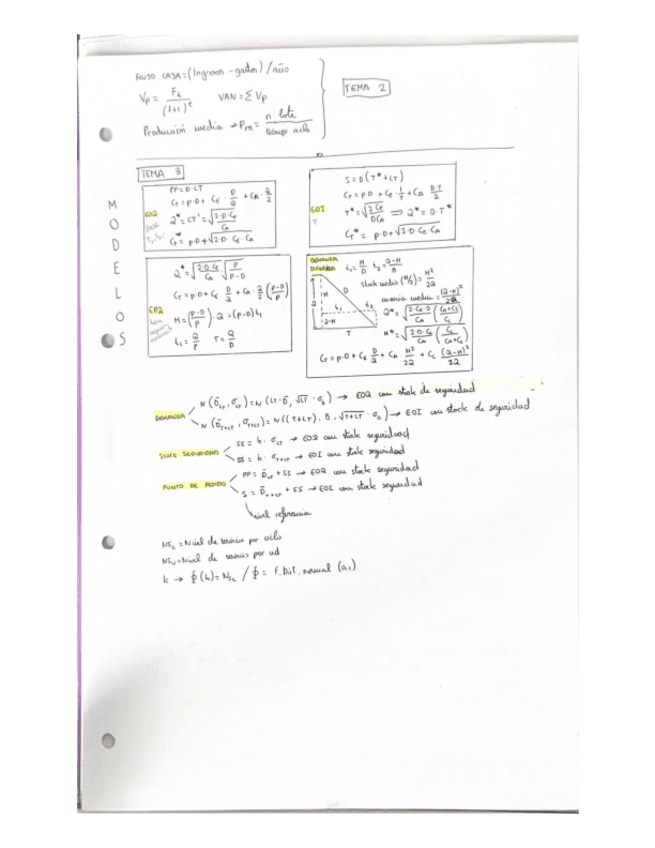 FLUJO CAJA = (Ingresos - gastos) / año
Vp = Ft / (1+r)^t   VAN = Σ Vp
Producción media → Pm = n lote / tiempo ciclo
TEMA 2
TEMA 3
MODELOS
EOQ
PP = D·LT
CT = p·D + CE · D/Q + CA · Q/2
Q* = CT' = √(2·D·CE / CA)
CT* = p·D + √(2·D·CE·CA)
EOI
T
S = D(T* + LT)
CT = p·D + CE · 1/T + CA · DT/2
T* = √(2CE / DCA) ⇒ Q* = D·T*
CT* = p·D + √(2·D·CE·CA)
EPQ
Q* = √(2·D·CE / CA) √(P / P-D)
CT = p·D + CE D/Q + CA · Q/2 (P-D / P)
H = (P-D / P) · Q = (P-D) t1
t1 = Q/P   T = Q/D
DEMANDA DIFERIDA
t1 = H/D   t2 = Q-H / D
stock medio (H/2) = H² / 2Q
Q H D t1 t2 Q-H T
Q* = √(2·CE·D / CA) √(CA+CC / CC)
H* = √(2·D·CE / CA) √(CC / CA+CC)
CT = p·D + CE D/Q + CA H²/2Q + CC (Q-H)²/2Q
DEMANDA
N(D̄LT, σLT) = N(LT·D̄, √LT · σD) → EOQ con stock de seguridad
N(D̄T+LT, σT+LT) = N((T+LT)·D̄, √T+LT · σD) → EOI con stock de seguridad
STOCK SEGURIDAD
SS = k · σLT → EOQ con stock seguridad
SS = k · σT+LT → EOI con stock seguridad
PUNTO DE PEDIDO
PP = D̄LT + SS → EOQ con stock seguridad
S = D̄T+LT + SS → EOI con stock seguridad
nivel referencia
NSc = Nivel de servicio por ciclo
NSu = Nivel de servicio por ud
k → Φ(k) = NSc / Φ = F. Dist. normal (0,1)